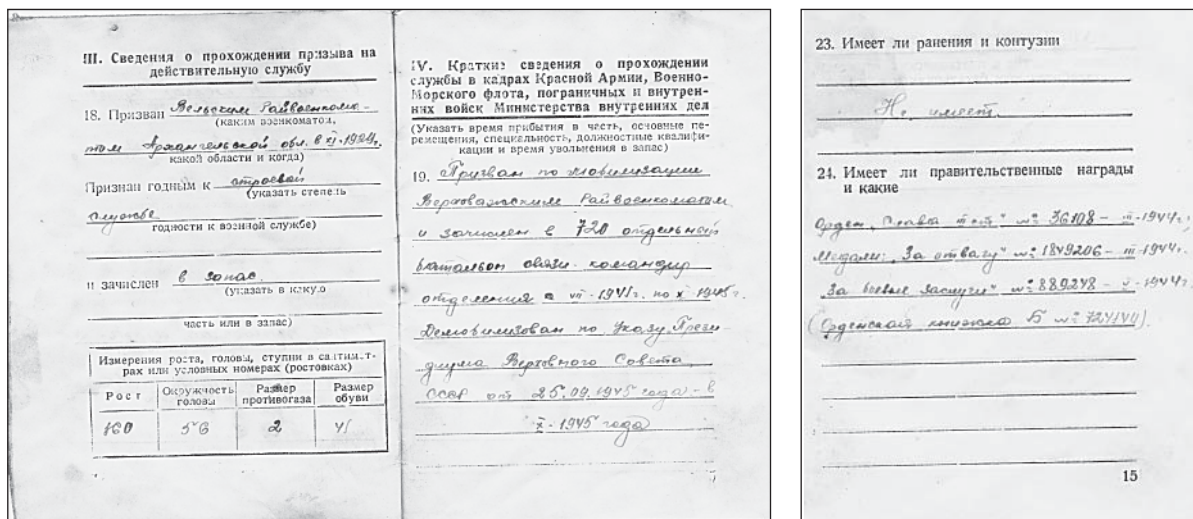 III. Сведения о прохождении призыва на
действительную службу
18. Призван Вельским Райвоенкома-
(каким военкоматом,
том Архангельской обл. в XI-1924г.
какой области и когда)
Признан годным к строевой
(указать степень
службе
годности к военной службе)
и зачислен в запас.
(указать в какую
часть или в запас)
Измерения роста, головы, ступни в сантимет-
рах или условных номерах (ростовках)
Рост Окружность головы Размер противогаза Размер обуви
160 56 2 41
IV. Краткие сведения о прохождении
службы в кадрах Красной Армии, Военно-
Морского флота, пограничных и внутрен-
них войск Министерства внутренних дел
(Указать время прибытия в часть, основные пе-
ремещения, специальность, должностные квалифи-
кации и время увольнения в запас)
19. Призван по мобилизации
Верховажским Райвоенкоматом
и зачислен в 720 отдельный
батальон связи командир
отделения с VII-1941г. по X-1945г.
Демобилизован по Указу Прези-
диума Верховного Совета
СССР от 25.09.1945 года - в
X-1945 года
23. Имеет ли ранения и контузии
Не имеет.
24. Имеет ли правительственные награды
и какие
Орден „Славы III ст" № 36108 - III-1944г.,
Медали: „За отвагу" № 1849206 - III-1944г.
„За боевые заслуги" № 889248 - V-1944г.
(Орденская книжка Б № 724144).
15